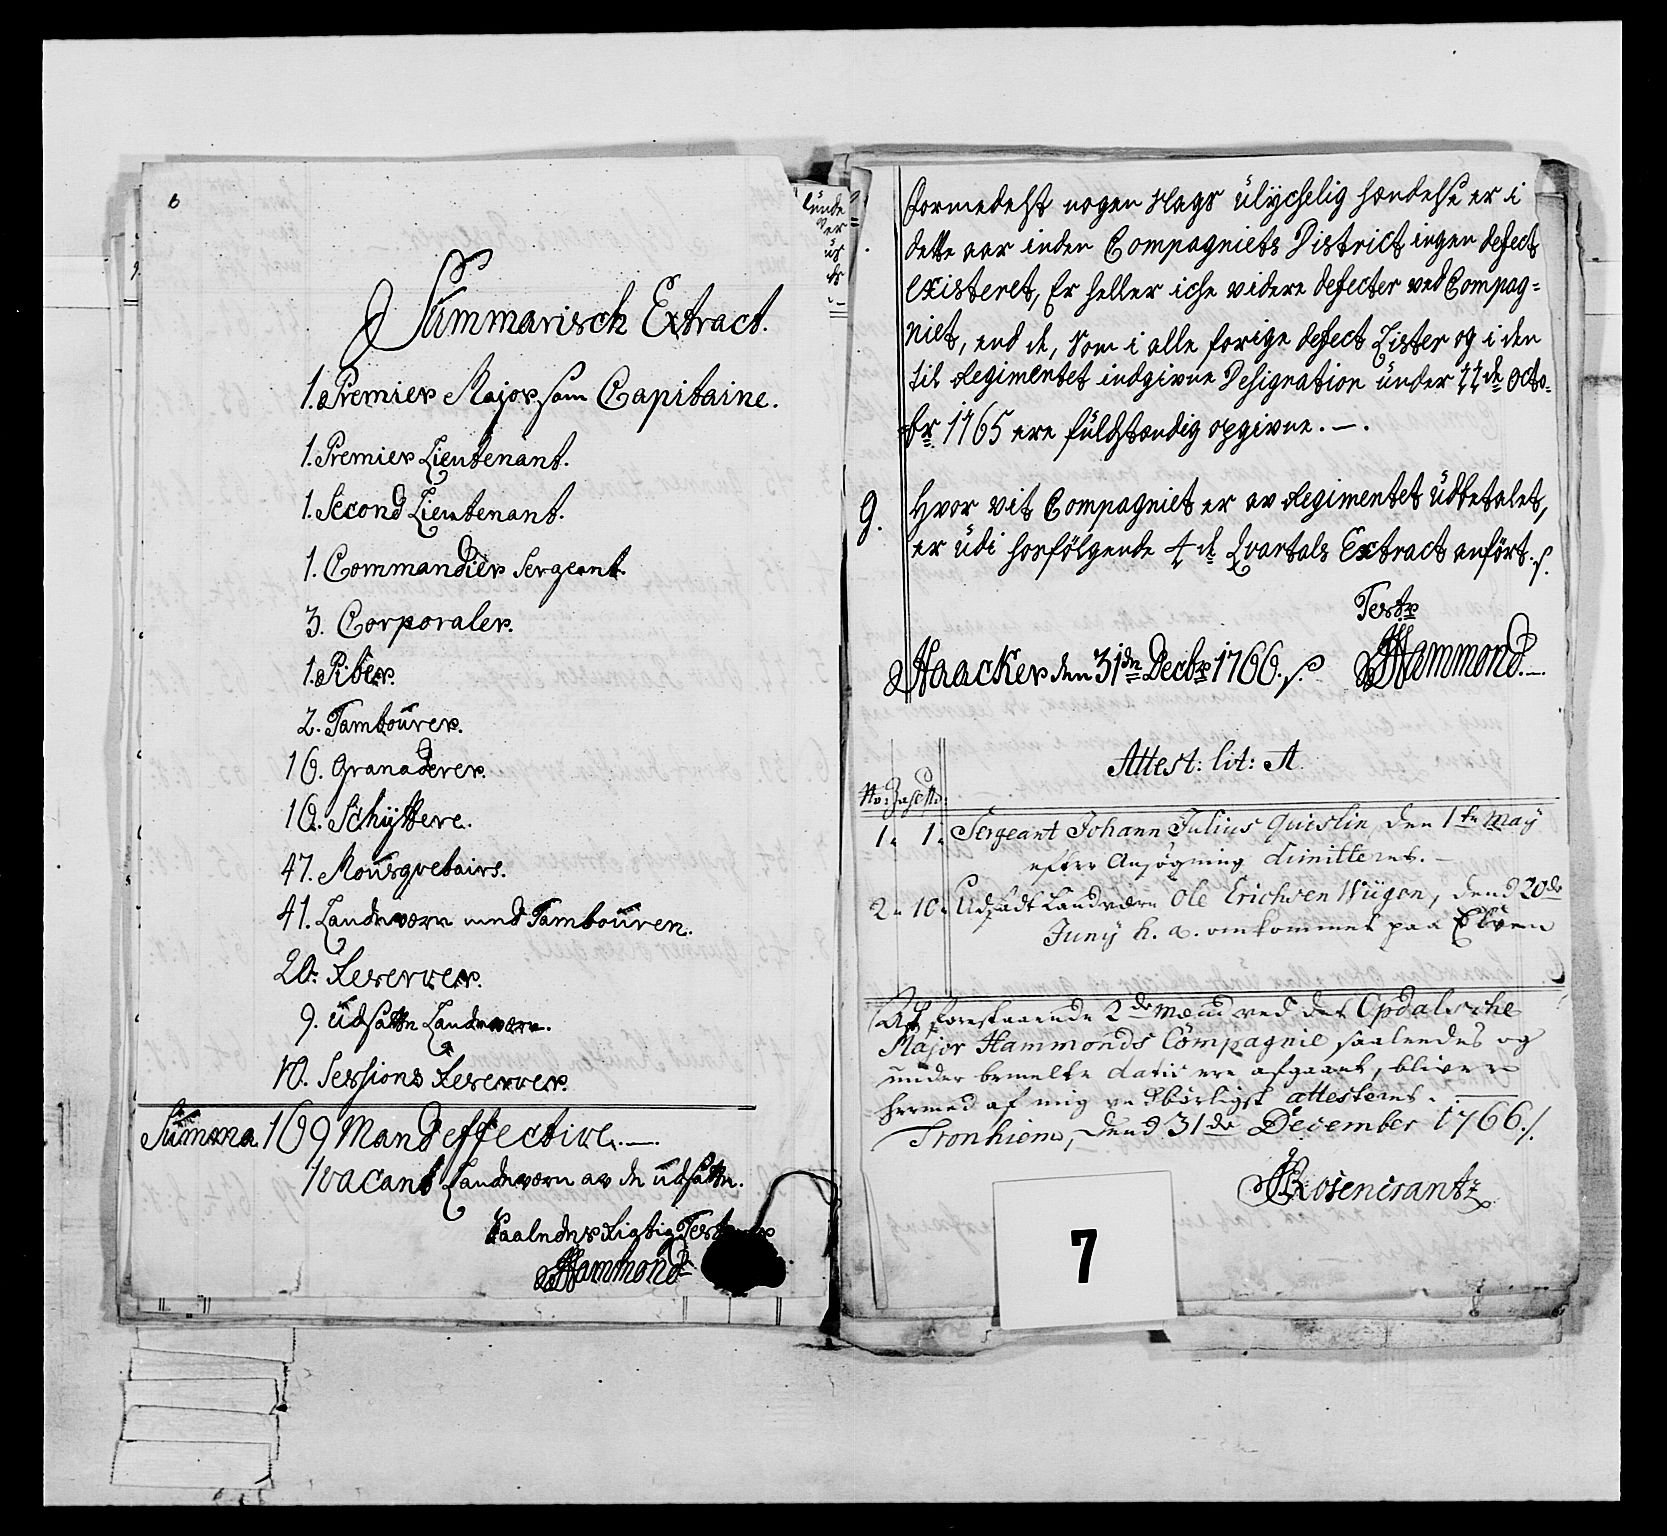 6
Summarisch Extract.
1. Premier Major som Capitaine.
1. Premier Lieutenant.
1. Second Lieutenant.
1. Commandier Sergeant.
3. Corporaler.
1. Piber.
2. Tambourer.
16. Granaderer.
16. Schÿttere.
47. Mousqvetairs.
41. Landeværn med Tambouren.
20. Reserver.
9. Udsatte Landeværn.
10. Sessions Reserver.
Summa 169 Mand effective.
1 vacant Landeværn av de udsatte.
Saaledes Rigtig Testerer
Hammond
lunde
ver
us
formedelst nogen slags ulychelig hændelse er i
dette aar inden Compagniets District ingen defect
existeret, Er heller iche videre defecter ved Compag=
niet, end de, som i alle forige defect Lister og i den
til Regimentet indgivne Designation under 11de Octo-
br. 1765 ere fuldstændig opgivne.
9. Hvor vit Compagniet er av Regimentet udbetalet,
er udi hosfölgende 4de Qvartals Extract anfört.
Testr
Haacker den 31de Decbr 1766. Hammond.
Attest: lit: A
No:
1. 1. Sergeant Johann Julius Quislin den 1te May
efter Ansøgning dimitteret.
2. 10. Udsadt Landværn Ole Erichsen Wiigen, dend 20de
Junÿ h. a. omkommet paa Elven
At forestaaende 2de Mænd ved det Opdalsche
Major Hammonds Compagnie saaledes og
under bemelte datis ere afgaaet, bliver
hermed af mig vedbörligst attesteret.
Tronhiem, dend 31de December 1766.
Rosencrantz
7